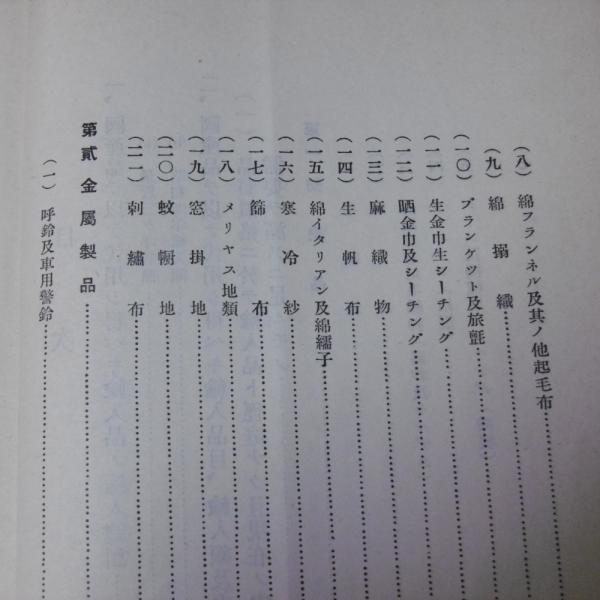 (八)綿フランネル及其ノ他起毛布
(九)綿搦織
(一〇)ブランケツト及旅氈
(一一)生金巾生シーチング
(一二)晒金巾及シーチング
(一三)麻織物
(一四)生帆布
(一五)綿イタリアン及綿繻子
(一六)寒冷紗
(一七)篩布
(一八)メリヤス地類
(一九)窓掛地
(二〇)蚊幮地
(二一)刺繡布
第貳金屬製品
(一)呼鈴及車用警鈴